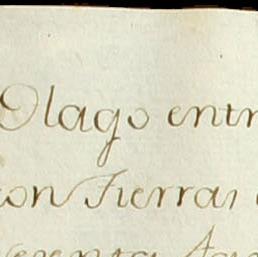 Olago entr
con Tierras